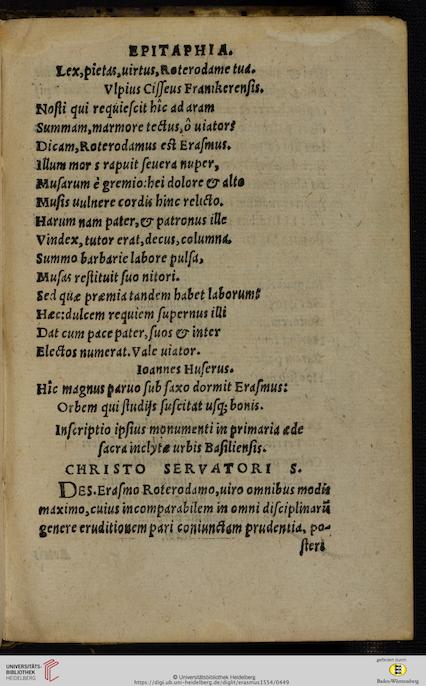 EPITAPHIA.
Lex, pietas, uirtus, Roterodame tua.
Vlpius Cisseus Franikerensis.
Nosti qui requiescit hîc ad aram
Summam, marmore tectus, ô uiator?
Dicam, Roterodamus est Erasmus.
Illum mors rapuit seuera nuper,
Musarum è gremio: hei dolore & alto
Musis uulnere cordis hinc relicto.
Harum nam pater, & patronus ille
Vindex, tutor erat, decus, columna.
Summo barbarie labore pulsa,
Musas restituit suo nitori.
Sed quæ præmia tandem habet laborum?
Hæc: dulcem requiem supernus illi
Dat cum pace pater, suos & inter
Electos numerat. Vale uiator.
Ioannes Huserus.
Hîc magnus paruo sub saxo dormit Erasmus:
Orbem qui studijs suscitat usq; bonis.
Inscriptio ipsius monumenti in primaria æde
sacra inclytæ urbis Basiliensis.
CHRISTO SERVATORI S.
DES. Erasmo Roterodamo, uiro omnibus modis
maximo, cuius incomparabilem in omni disciplinarū
genere eruditionem pari coniunctam prudentia, po-
steri
UNIVERSITÄTS-
BIBLIOTHEK
HEIDELBERG
© Universitätsbibliothek Heidelberg
https://digi.ub.uni-heidelberg.de/diglit/erasmus1554/0449
gefördert durch
Baden-Württemberg